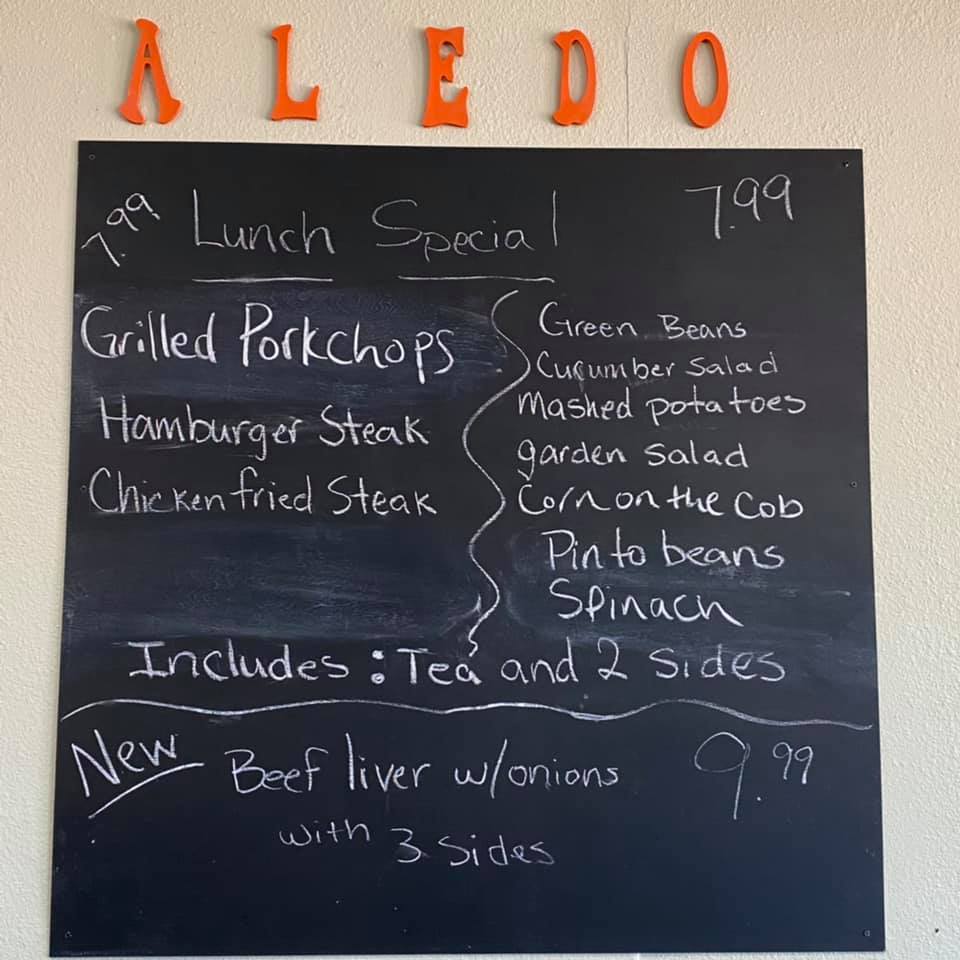 ALEDO
7.99 Lunch Special 7.99
Grilled Porkchops
Hamburger Steak
Chicken fried Steak
Green Beans
Cucumber Salad
Mashed potatoes
garden salad
Corn on the Cob
Pinto beans
Spinach
Includes: Tea and 2 Sides
New Beef liver w/onions 9.99
with 3 Sides